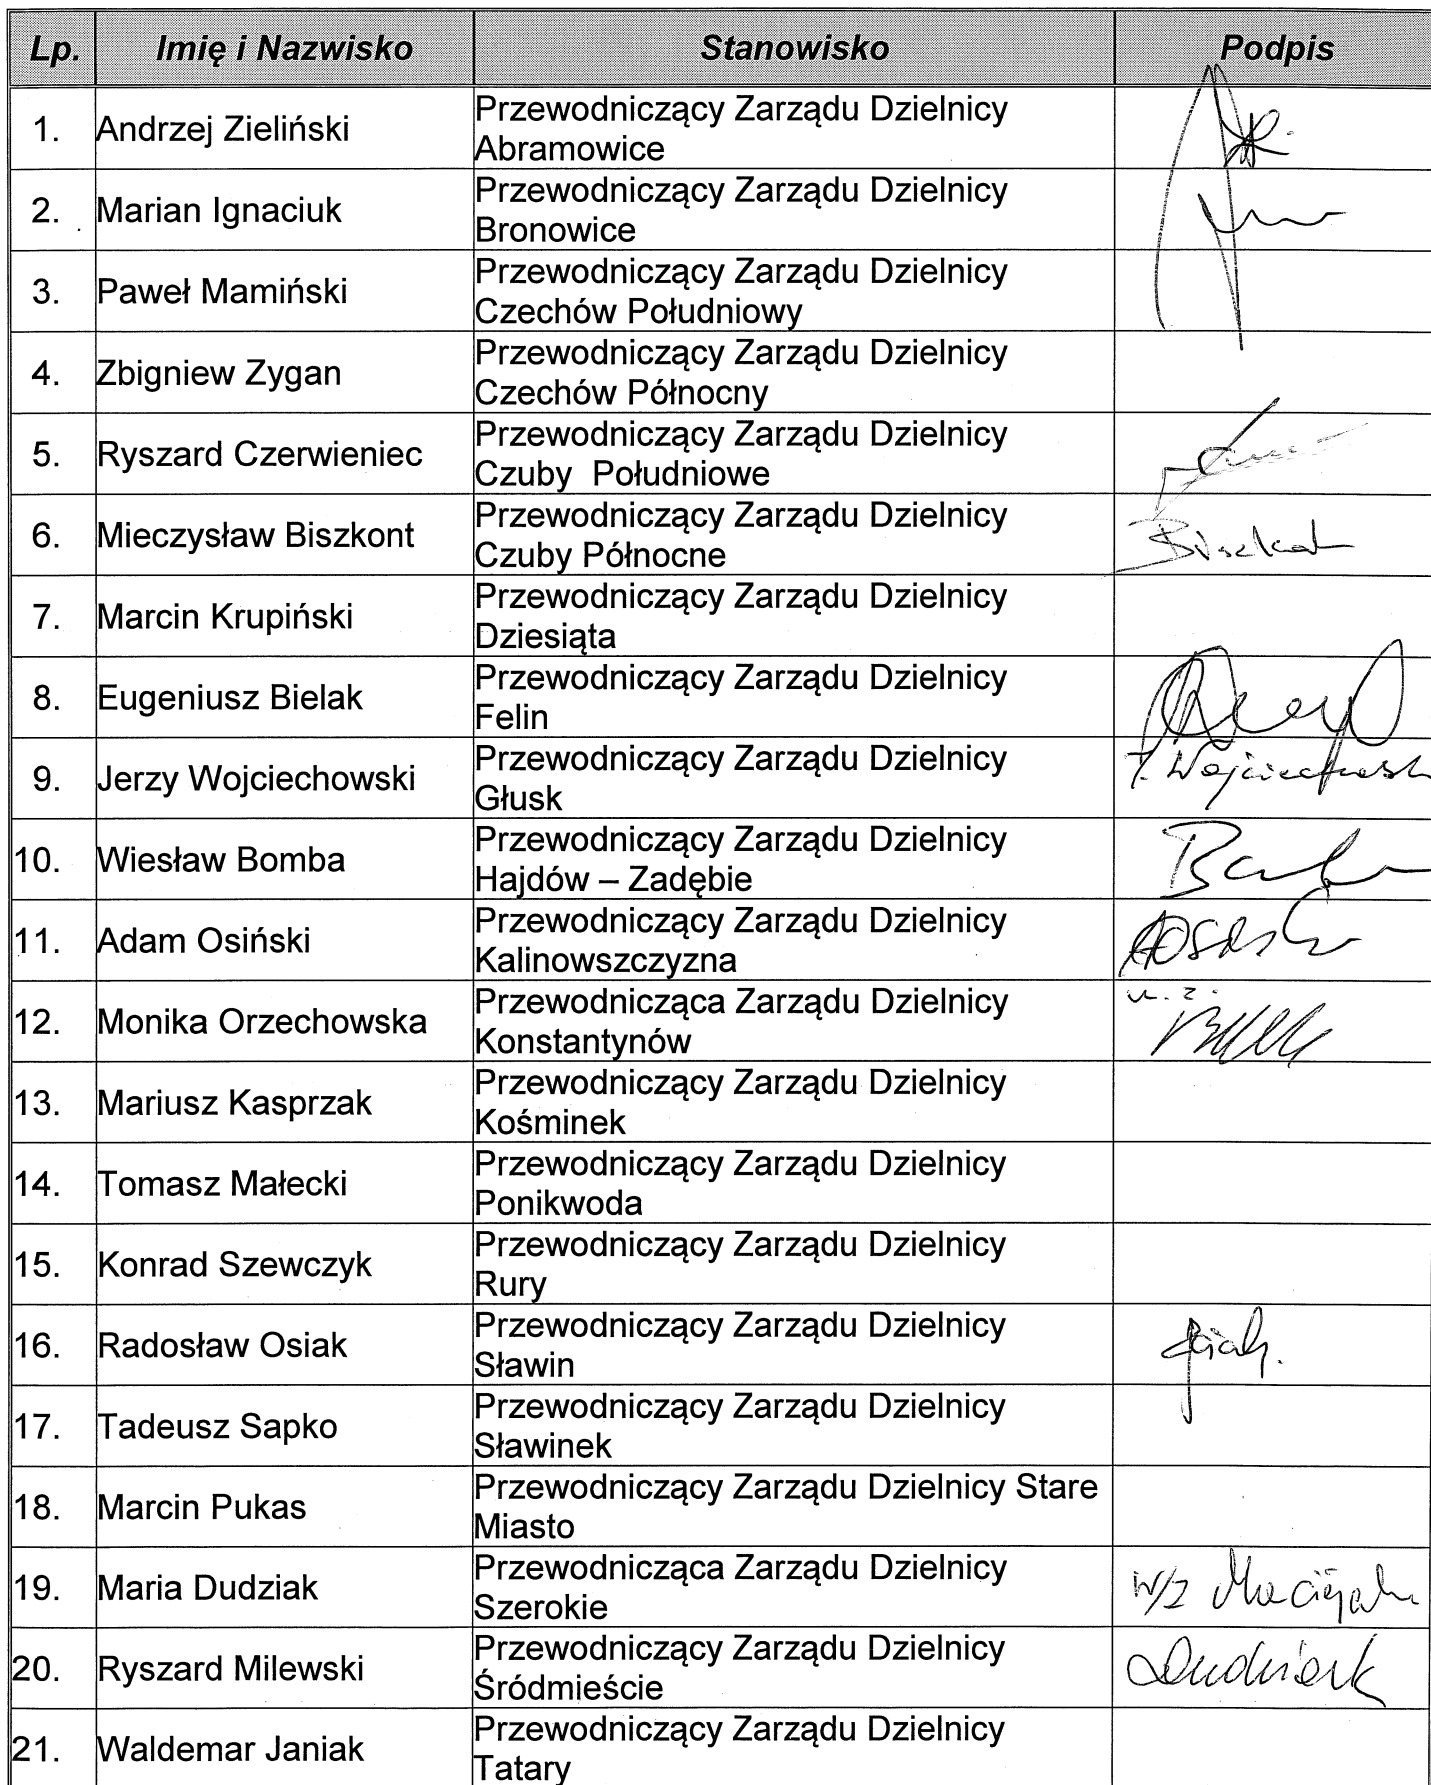 Lp. Imię i Nazwisko Stanowisko Podpis
1. Andrzej Zieliński Przewodniczący Zarządu Dzielnicy
Abramowice
2. Marian Ignaciuk Przewodniczący Zarządu Dzielnicy
Bronowice
3. Paweł Mamiński Przewodniczący Zarządu Dzielnicy
Czechów Południowy
4. Zbigniew Zygan Przewodniczący Zarządu Dzielnicy
Czechów Północny
5. Ryszard Czerwieniec Przewodniczący Zarządu Dzielnicy
Czuby Południowe
6. Mieczysław Biszkont Przewodniczący Zarządu Dzielnicy
Czuby Północne
7. Marcin Krupiński Przewodniczący Zarządu Dzielnicy
Dziesiąta
8. Eugeniusz Bielak Przewodniczący Zarządu Dzielnicy
Felin
9. Jerzy Wojciechowski Przewodniczący Zarządu Dzielnicy
Głusk
10. Wiesław Bomba Przewodniczący Zarządu Dzielnicy
Hajdów – Zadębie
11. Adam Osiński Przewodniczący Zarządu Dzielnicy
Kalinowszczyzna
12. Monika Orzechowska Przewodnicząca Zarządu Dzielnicy
Konstantynów
13. Mariusz Kasprzak Przewodniczący Zarządu Dzielnicy
Kośminek
14. Tomasz Małecki Przewodniczący Zarządu Dzielnicy
Ponikwoda
15. Konrad Szewczyk Przewodniczący Zarządu Dzielnicy
Rury
16. Radosław Osiak Przewodniczący Zarządu Dzielnicy
Sławin
17. Tadeusz Sapko Przewodniczący Zarządu Dzielnicy
Sławinek
18. Marcin Pukas Przewodniczący Zarządu Dzielnicy Stare
Miasto
19. Maria Dudziak Przewodnicząca Zarządu Dzielnicy w/z
Szerokie
20. Ryszard Milewski Przewodniczący Zarządu Dzielnicy Dudziak
Śródmieście
21. Waldemar Janiak Przewodniczący Zarządu Dzielnicy
Tatary